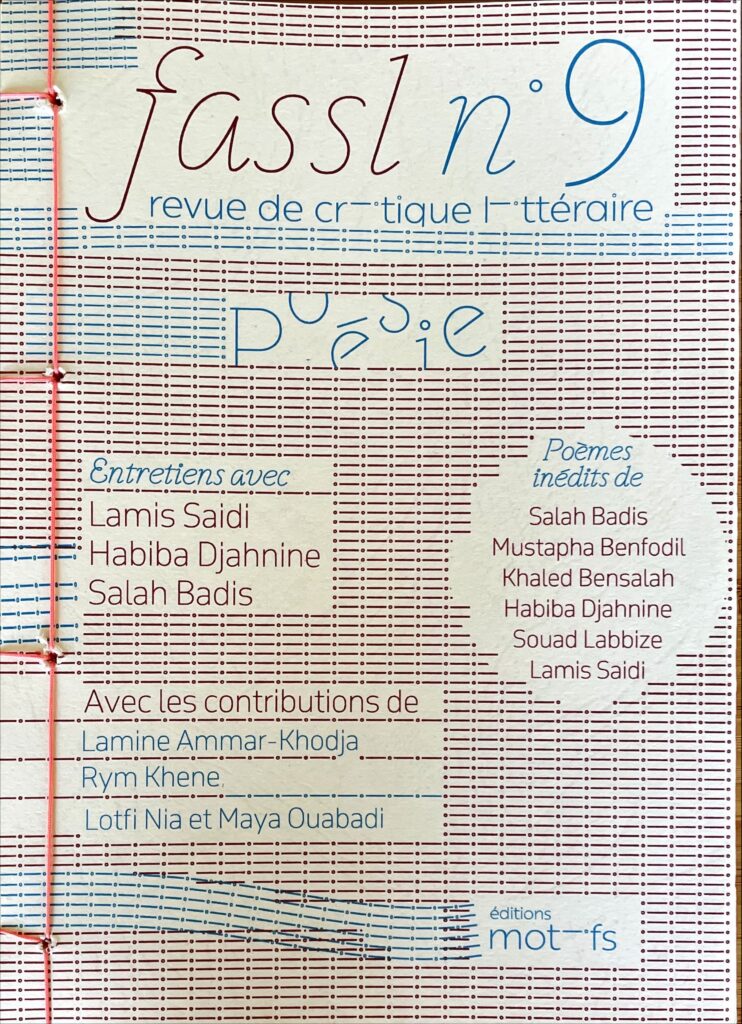 fassl n°9
revue de critique littéraire
poésie
Entretiens avec
Lamis Saidi
Habiba Djahnine
Salah Badis
Poèmes
inédits de
Salah Badis
Mustapha Benfodil
Khaled Bensalah
Habiba Djahnine
Souad Labbize
Lamis Saidi
Avec les contributions de
Lamine Ammar-Khodja
Rym Khene
Lotfi Nia et Maya Ouabadi
éditions
motifs